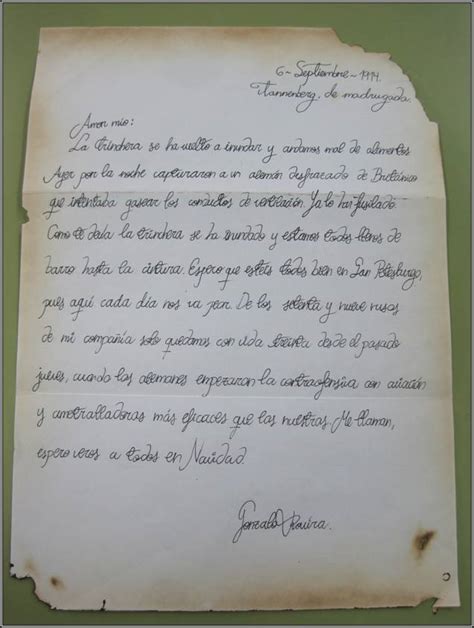 6 - Septiembre - 1914.
Tannenberg, de madrugada.
Amor mío:
La trinchera se ha vuelto a inundar y andamos mal de alimentos
Ayer por la noche capturaron a un alemán disfrazado de Británico
que intentaba gasear los conductos de ventilación. Ya lo han fusilado.
Como te decía la trinchera se ha inundado y estamos todos llenos de
barro hasta la cintura. Espero que estéis todos bien en San Petesburgo,
pues aquí cada día nos va peor. De los setenta y nueve rusos
de mi compañía solo quedamos con vida treinta desde el pasado
jueves, cuando los alemanes empezaron la contraofensiva con aviación
y ametralladoras más eficaces que las nuestras. Me llaman,
espero veros a todos en Navidad.
Gonzalo Rouira.